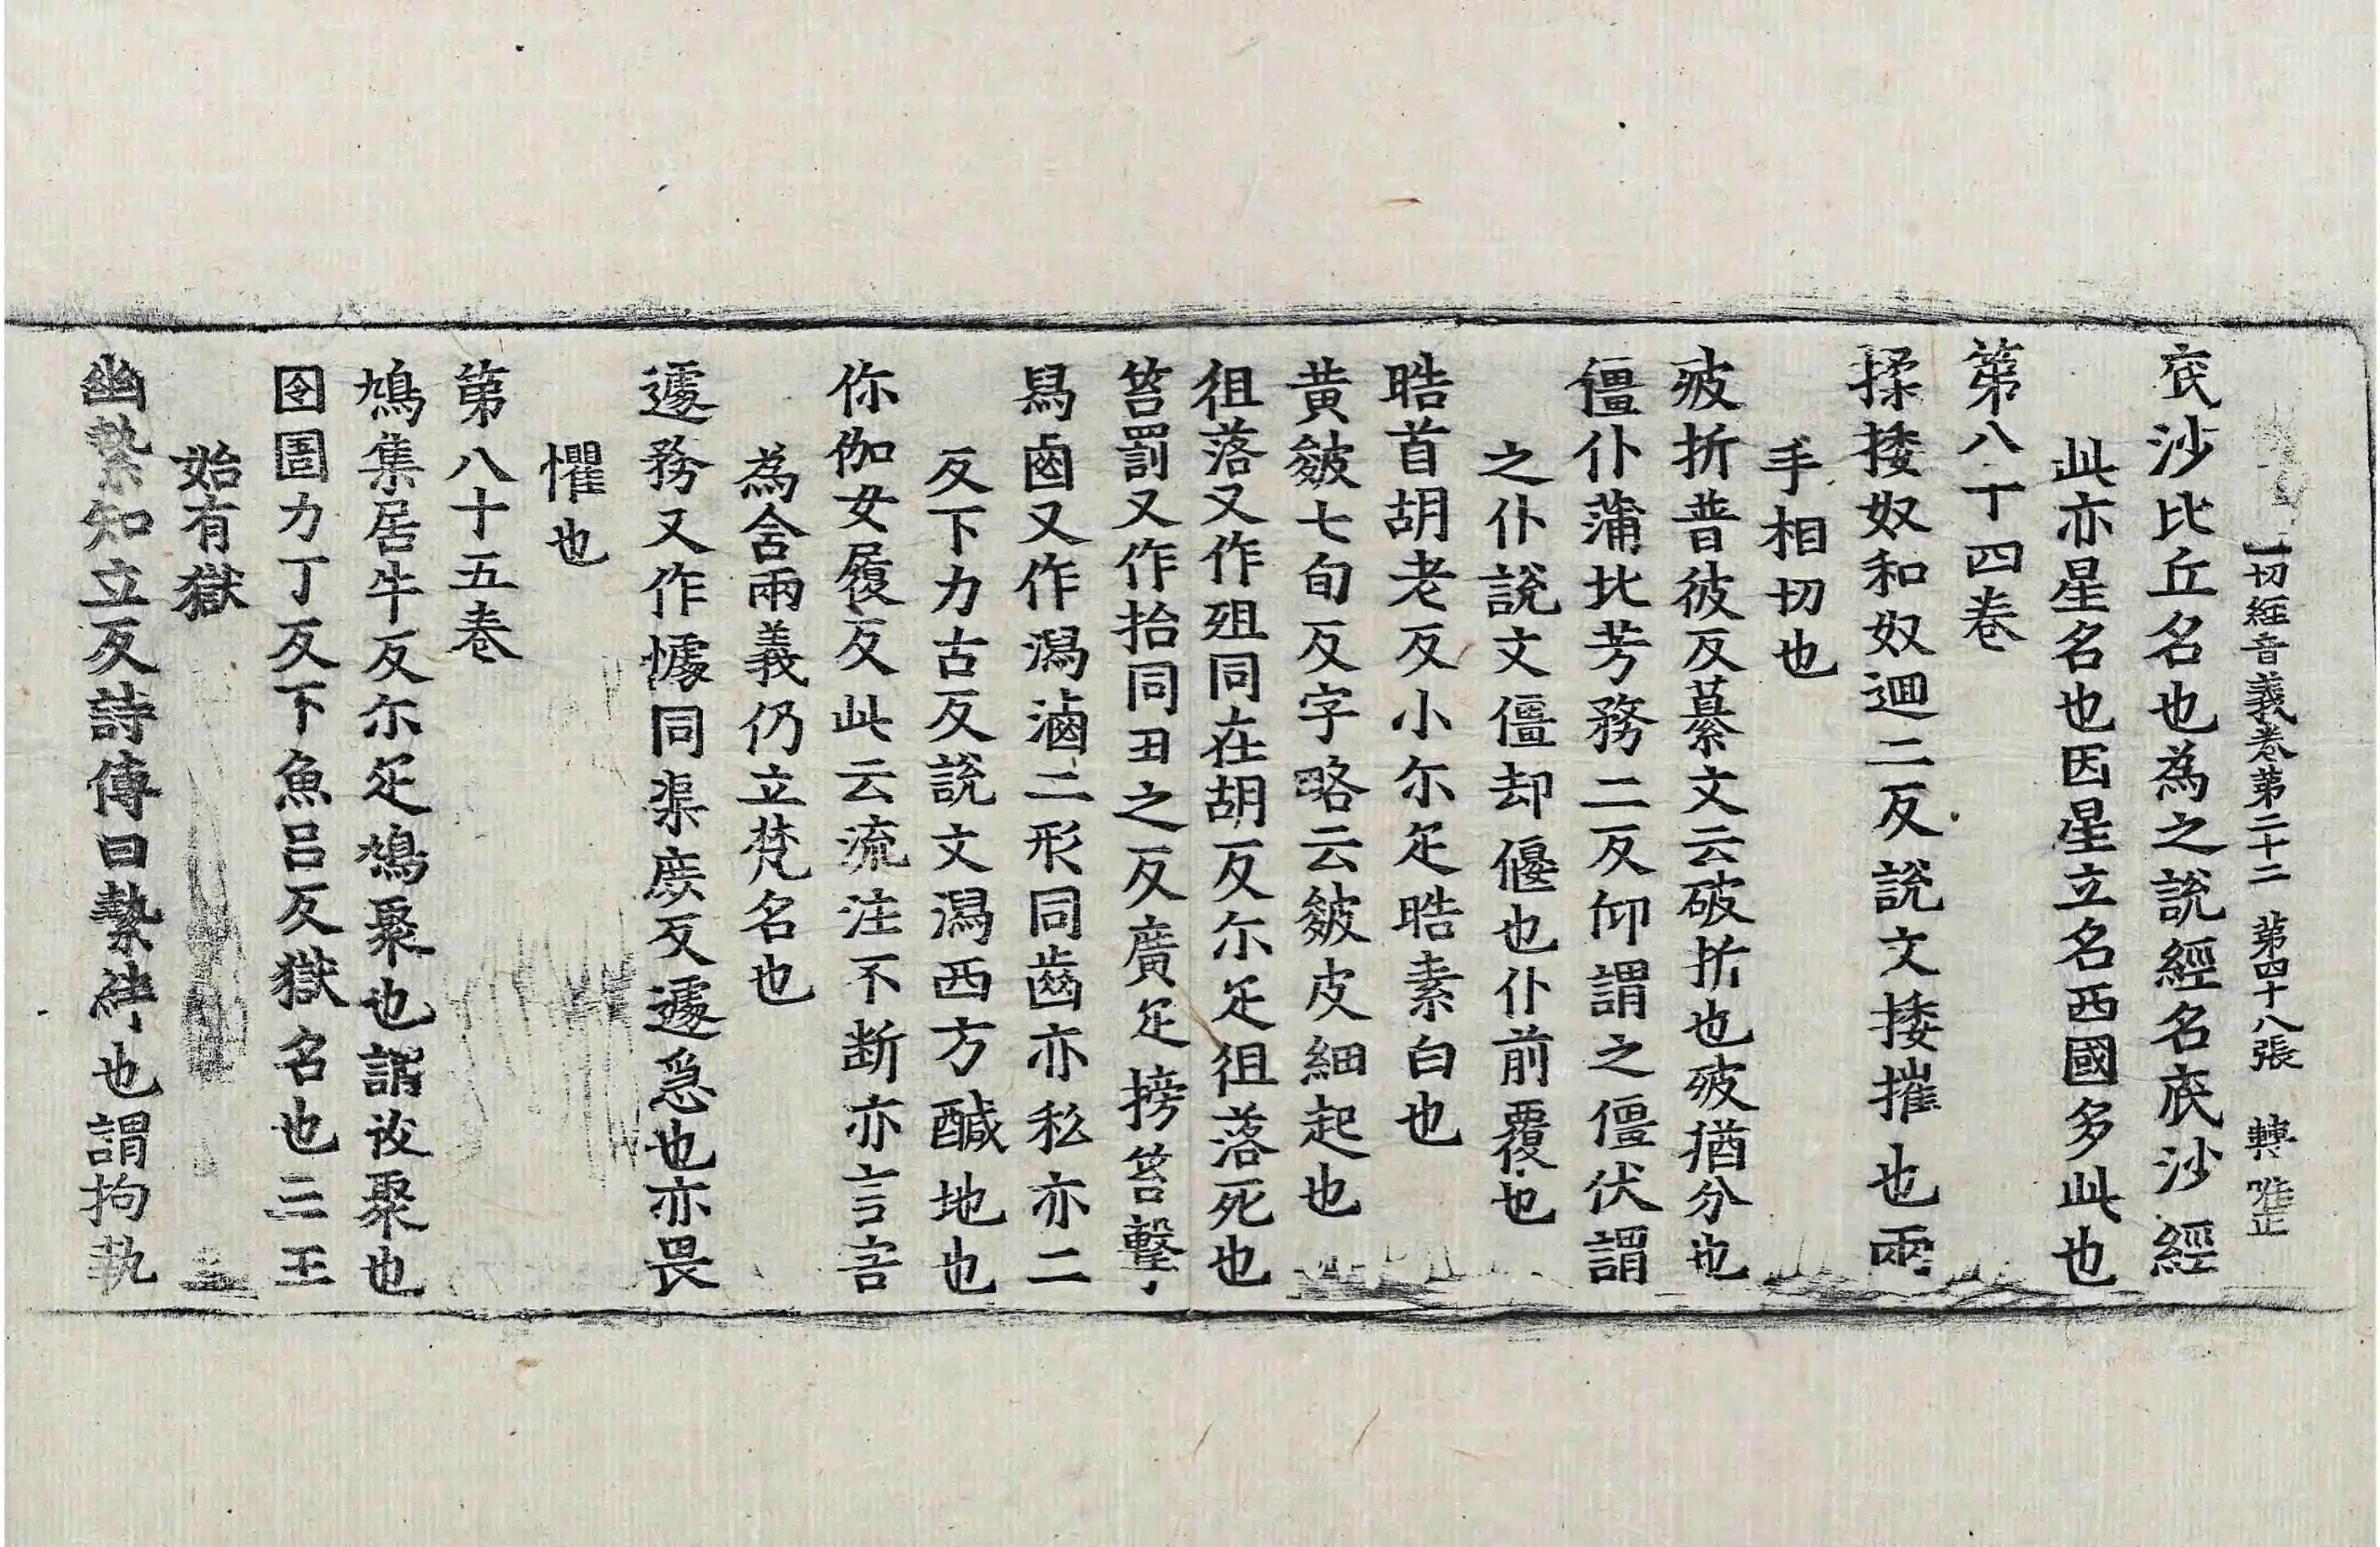 一切經音義卷第二十二 第四十八張 轉 唯正
底沙比丘名也為之說經名底沙經
此亦星名也因星立名西國多此也
第八十四卷
揉捼奴和奴迴二反說文捼摧也兩
手相切也
𤿎折普彼反纂文云破折也𤿎猶分也
僵仆蒲北芳務二反仰謂之僵伏謂
之仆說文僵却偃也仆前覆也
晧首胡老反小尒疋晧素白也
黃皴七旬反字略云皴皮細起也
徂落又作殂同在胡反尒疋徂落死也
笞罰又作抬同丑之反廣疋搒笞擊
舄鹵又作潟滷二形同齒亦私亦二
反下力古反說文潟西方醎地也
你伽女履反此云流注不断亦言害
為含兩義仍立梵名也
遽務又作懅同渠庶反遽急也亦畏
懼也
第八十五卷
鳩集居牛反尒疋鳩聚也謂收聚也
囹圄力丁反下魚呂反獄名也三王
始有獄
幽縶知立反詩傳曰縶絆也謂拘執